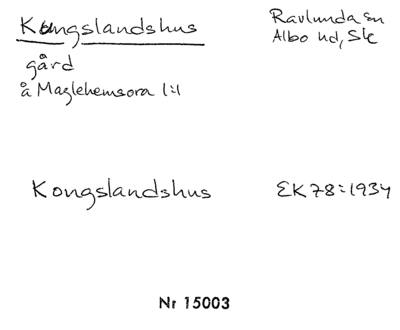 Kongslandshus
Ravlunda sn
Albo hd, Sk
gård
å Maglehemsora 1:1
Kongslandshus EK 78:1934
Nr 15003